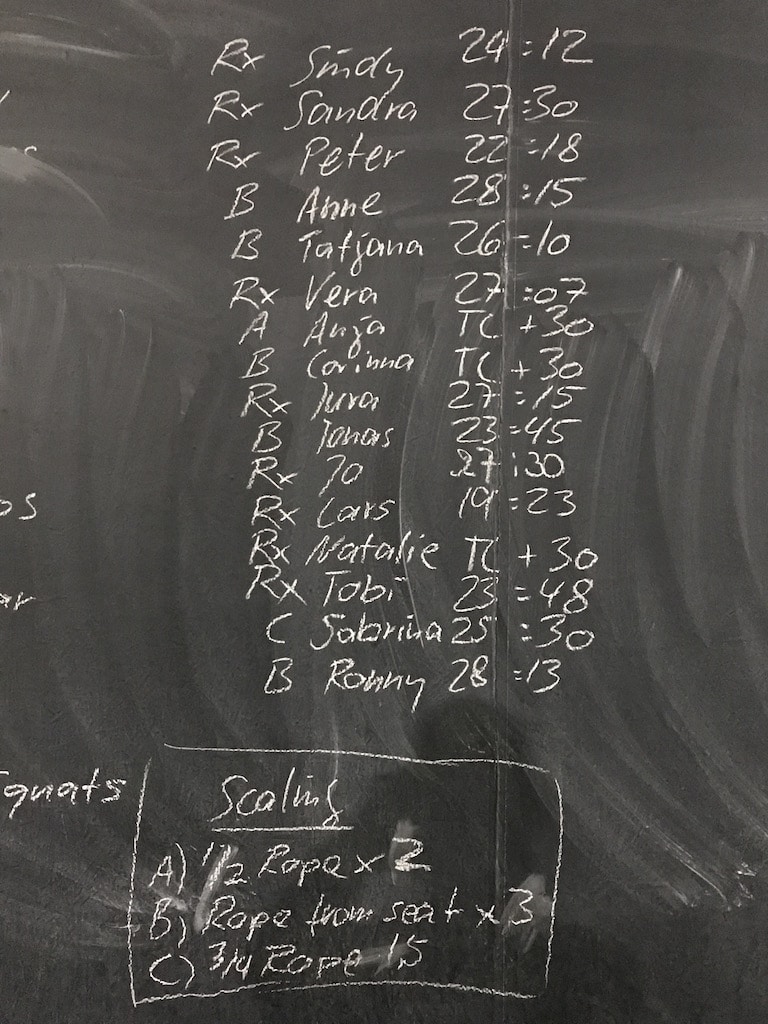 Rx Sindy 24:12
Rx Sandra 27:30
Rx Peter 22:18
B Anne 28:15
B Tatjana 26:10
Rx Vera 27:07
A Anja TC + 30
B Corinna TC + 30
Rx Jura 27:15
B Jonas 23:45
Rx Jo 27:30
Rx Lars 19:23
Rx Natalie TC + 30
Rx Tobi 23:48
C Sabrina 25:30
B Ronny 28:13
Scaling
A) 1/2 Rope x 2
B) Rope from seat x 3
C) 3/4 Rope 1,5